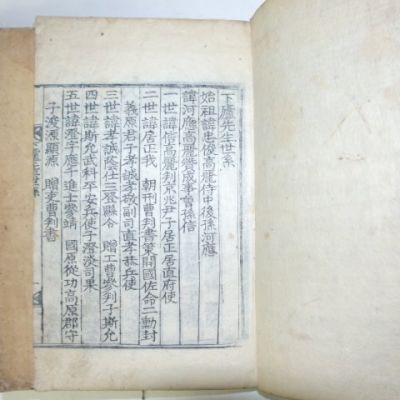 下廬先生世系
始祖諱忠俊高麗侍中後孫河應
諱河應高麗成事曾孫信
一世諱信高麗判京兆尹子居正居直府使
二世諱居正我 朝刑曹判書策開國佐命二勳封
義原君子孝誠孝敬副司直孝恭兵使
三世諱孝誠蔭仕三登縣令 贈工曹參判子斯允
四世諱斯允武科平安兵使子澄淡司果
五世諱澄字應千進士參靖 國原從功高原郡守
子浚源顯源 贈吏曹判書